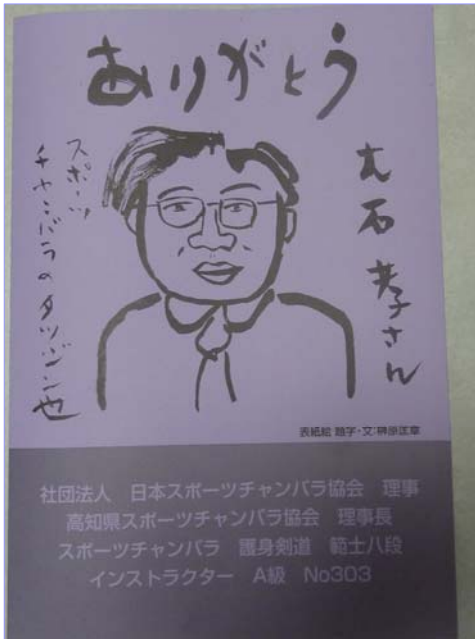 ありがとう
大石 さん
スポーツ
チャンバラのタツジン也
表紙絵 題字・文:榊原匡章
社団法人 日本スポーツチャンバラ協会 理事
高知県スポーツチャンバラ協会 理事長
スポーツチャンバラ 護身剣道 範士八段
インストラクター A級 No303